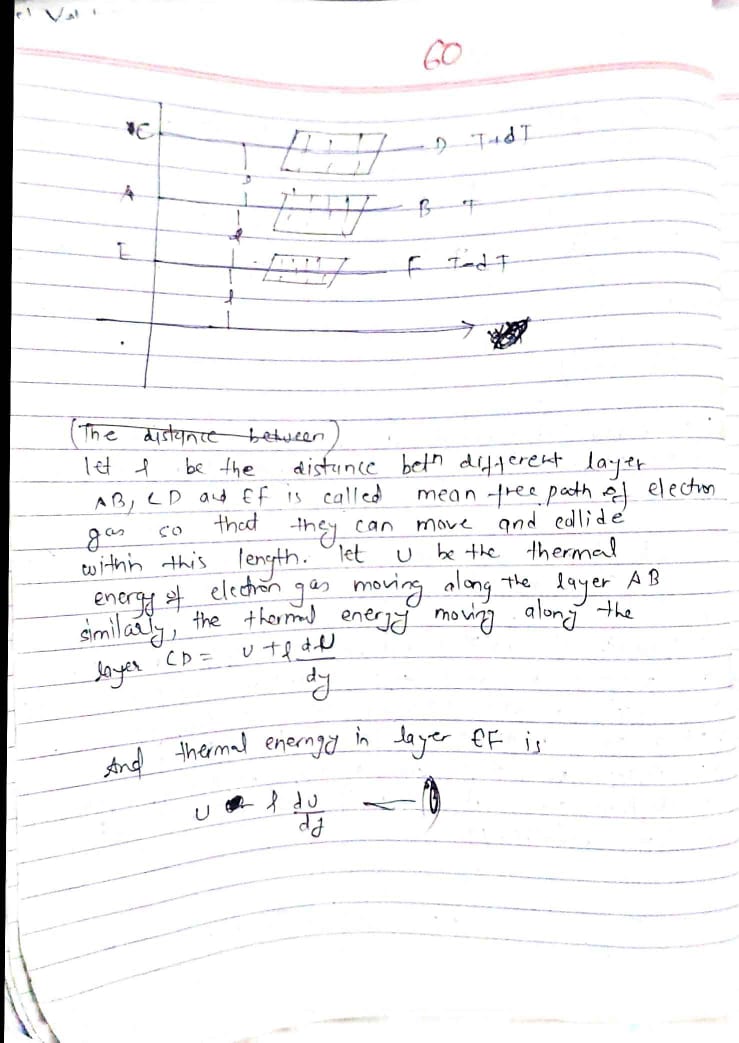 60
C
D T+dT
A
B T
E
F T-dT
l
l
l
(The distance between)
let l be the distance betn different layer
AB, CD and EF is called mean free path of electron
gas so that they can move and collide
within this length. let U be the thermal
energy of electron gas moving along the layer AB
similarly, the thermal energy moving along the
layer CD = U + l dU
dy
And thermal enerngy in layer EF is
U - l dU
dy